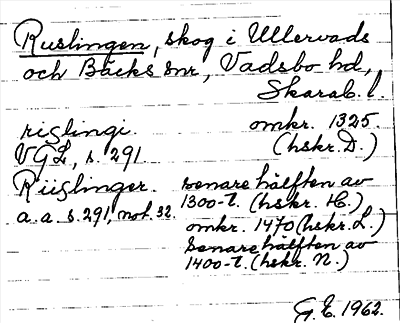 Ruslingen, skog i Ullervads
och Bäcks snr, Vadsbo hd,
Skarab. l.
rislingi. omkr. 1325.
VGL, s. 291 (hskr. D.)
Riislinger. senare hälften av
a. a. s. 291, not. 32. 1300-t. (hskr. H.)
omkr. 1470 (hskr. L.)
Senare hälften av
1400-t. (hskr. N.)
G. E. 1962.